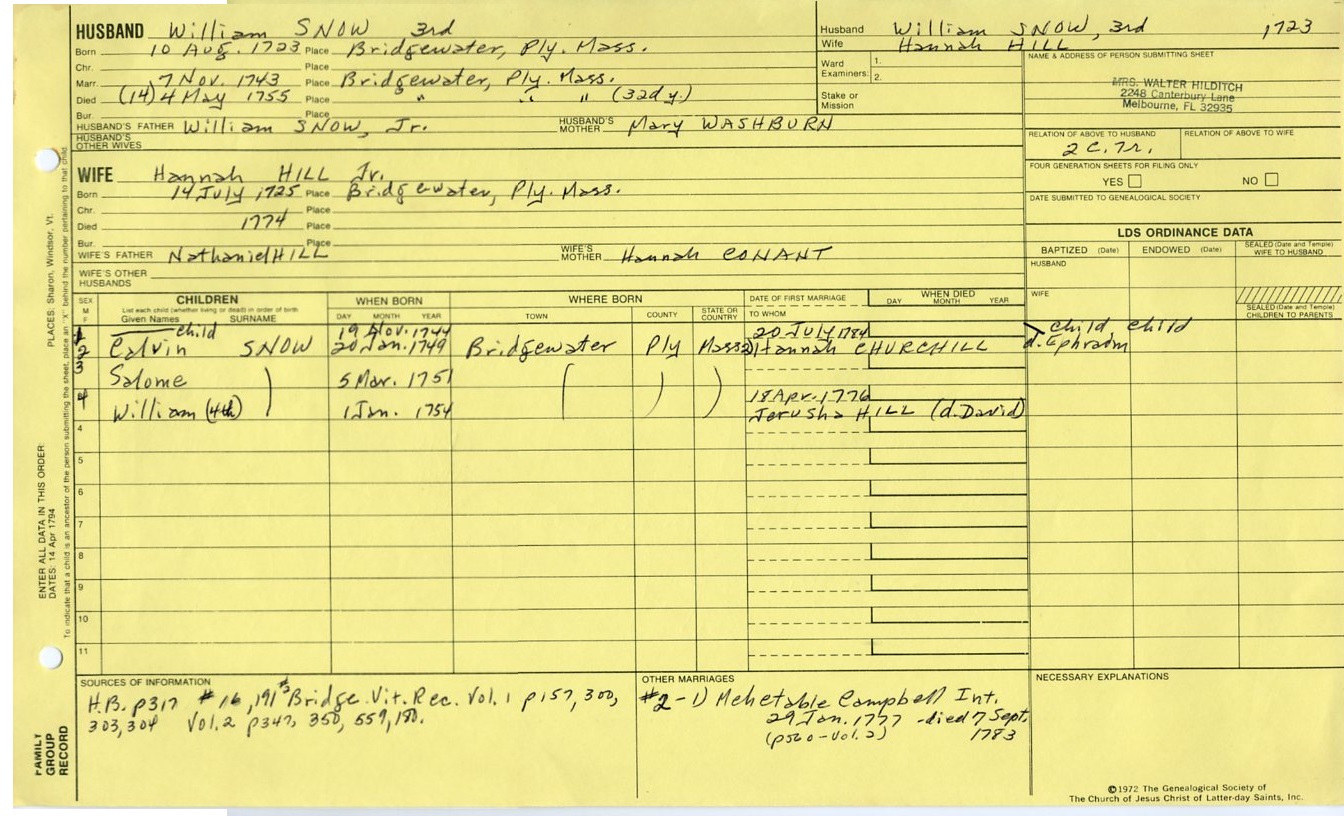 HUSBAND William SNOW 3rd
Born 10 Aug. 1723 Place Bridgewater, Ply. Mass.
Chr. Place
Marr. 7 Nov. 1743 Place Bridgewater, Ply. Mass.
Died (14) 4 May 1755 Place " " " (32d y.)
Bur. Place
HUSBAND'S FATHER William SNOW, Jr. HUSBAND'S MOTHER Mary WASHBURN
HUSBAND'S OTHER WIVES
WIFE Hannah HILL Jr.
Born 14 July 1725 Place Bridgewater, Ply. Mass.
Chr. Place
Died 1774 Place
Bur. Place
WIFE'S FATHER Nathaniel HILL WIFE'S MOTHER Hannah CONANT
WIFE'S OTHER HUSBANDS
Husband William SNOW, 3rd 1723
Wife Hannah HILL
Ward
Examiners: 1.
2.
Stake or
Mission
NAME & ADDRESS OF PERSON SUBMITTING SHEET
MRS. WALTER HILDITCH
2248 Canterbury Lane
Melbourne, FL 32935
RELATION OF ABOVE TO HUSBAND RELATION OF ABOVE TO WIFE
2 C. 7r.
FOUR GENERATION SHEETS FOR FILING ONLY
YES NO
DATE SUBMITTED TO GENEALOGICAL SOCIETY
LDS ORDINANCE DATA
BAPTIZED (Date) ENDOWED (Date) SEALED (Date and Temple) WIFE TO HUSBAND
HUSBAND
WIFE
SEALED (Date and Temple) CHILDREN TO PARENTS
SEX M F CHILDREN WHEN BORN WHERE BORN DATE OF FIRST MARRIAGE WHEN DIED
List each child (whether living or dead) in order of birth
Given Names SURNAME DAY MONTH YEAR TOWN COUNTY STATE OR COUNTRY TO WHOM DAY MONTH YEAR
1 child 19 Nov. 1744 20 July 1784 child, child
2 Calvin SNOW 20 Jan. 1749 Bridgewater Ply Mass 2) Hannah CHURCHILL d. Ephraim
3 Salome 5 Mar. 1751
4 William (4th) 1 Jan. 1754 18 Apr. 1776
Jerusha HILL (d. David)
4
5
6
7
8
9
10
11
SOURCES OF INFORMATION
H.B. p317 #16, 191 #2 Bridge. Vit. Rec. Vol. 1 p157, 300,
303, 304 Vol. 2 p347, 350, 559, 180.
OTHER MARRIAGES
#2 - 1) Mehetable Campbell Int.
29 Jan. 1777 - died 7 Sept.
(p560 - Vol. 2) 1783
NECESSARY EXPLANATIONS
©1972 The Genealogical Society of
The Church of Jesus Christ of Latter-day Saints, Inc.
PLACES: Sharon, Windsor, Vt.
To indicate that a child is an ancestor of the person submitting the sheet, place an "X" behind the number pertaining to that child.
ENTER ALL DATA IN THIS ORDER:
DATES: 14 Apr 1794
FAMILY
GROUP
RECORD